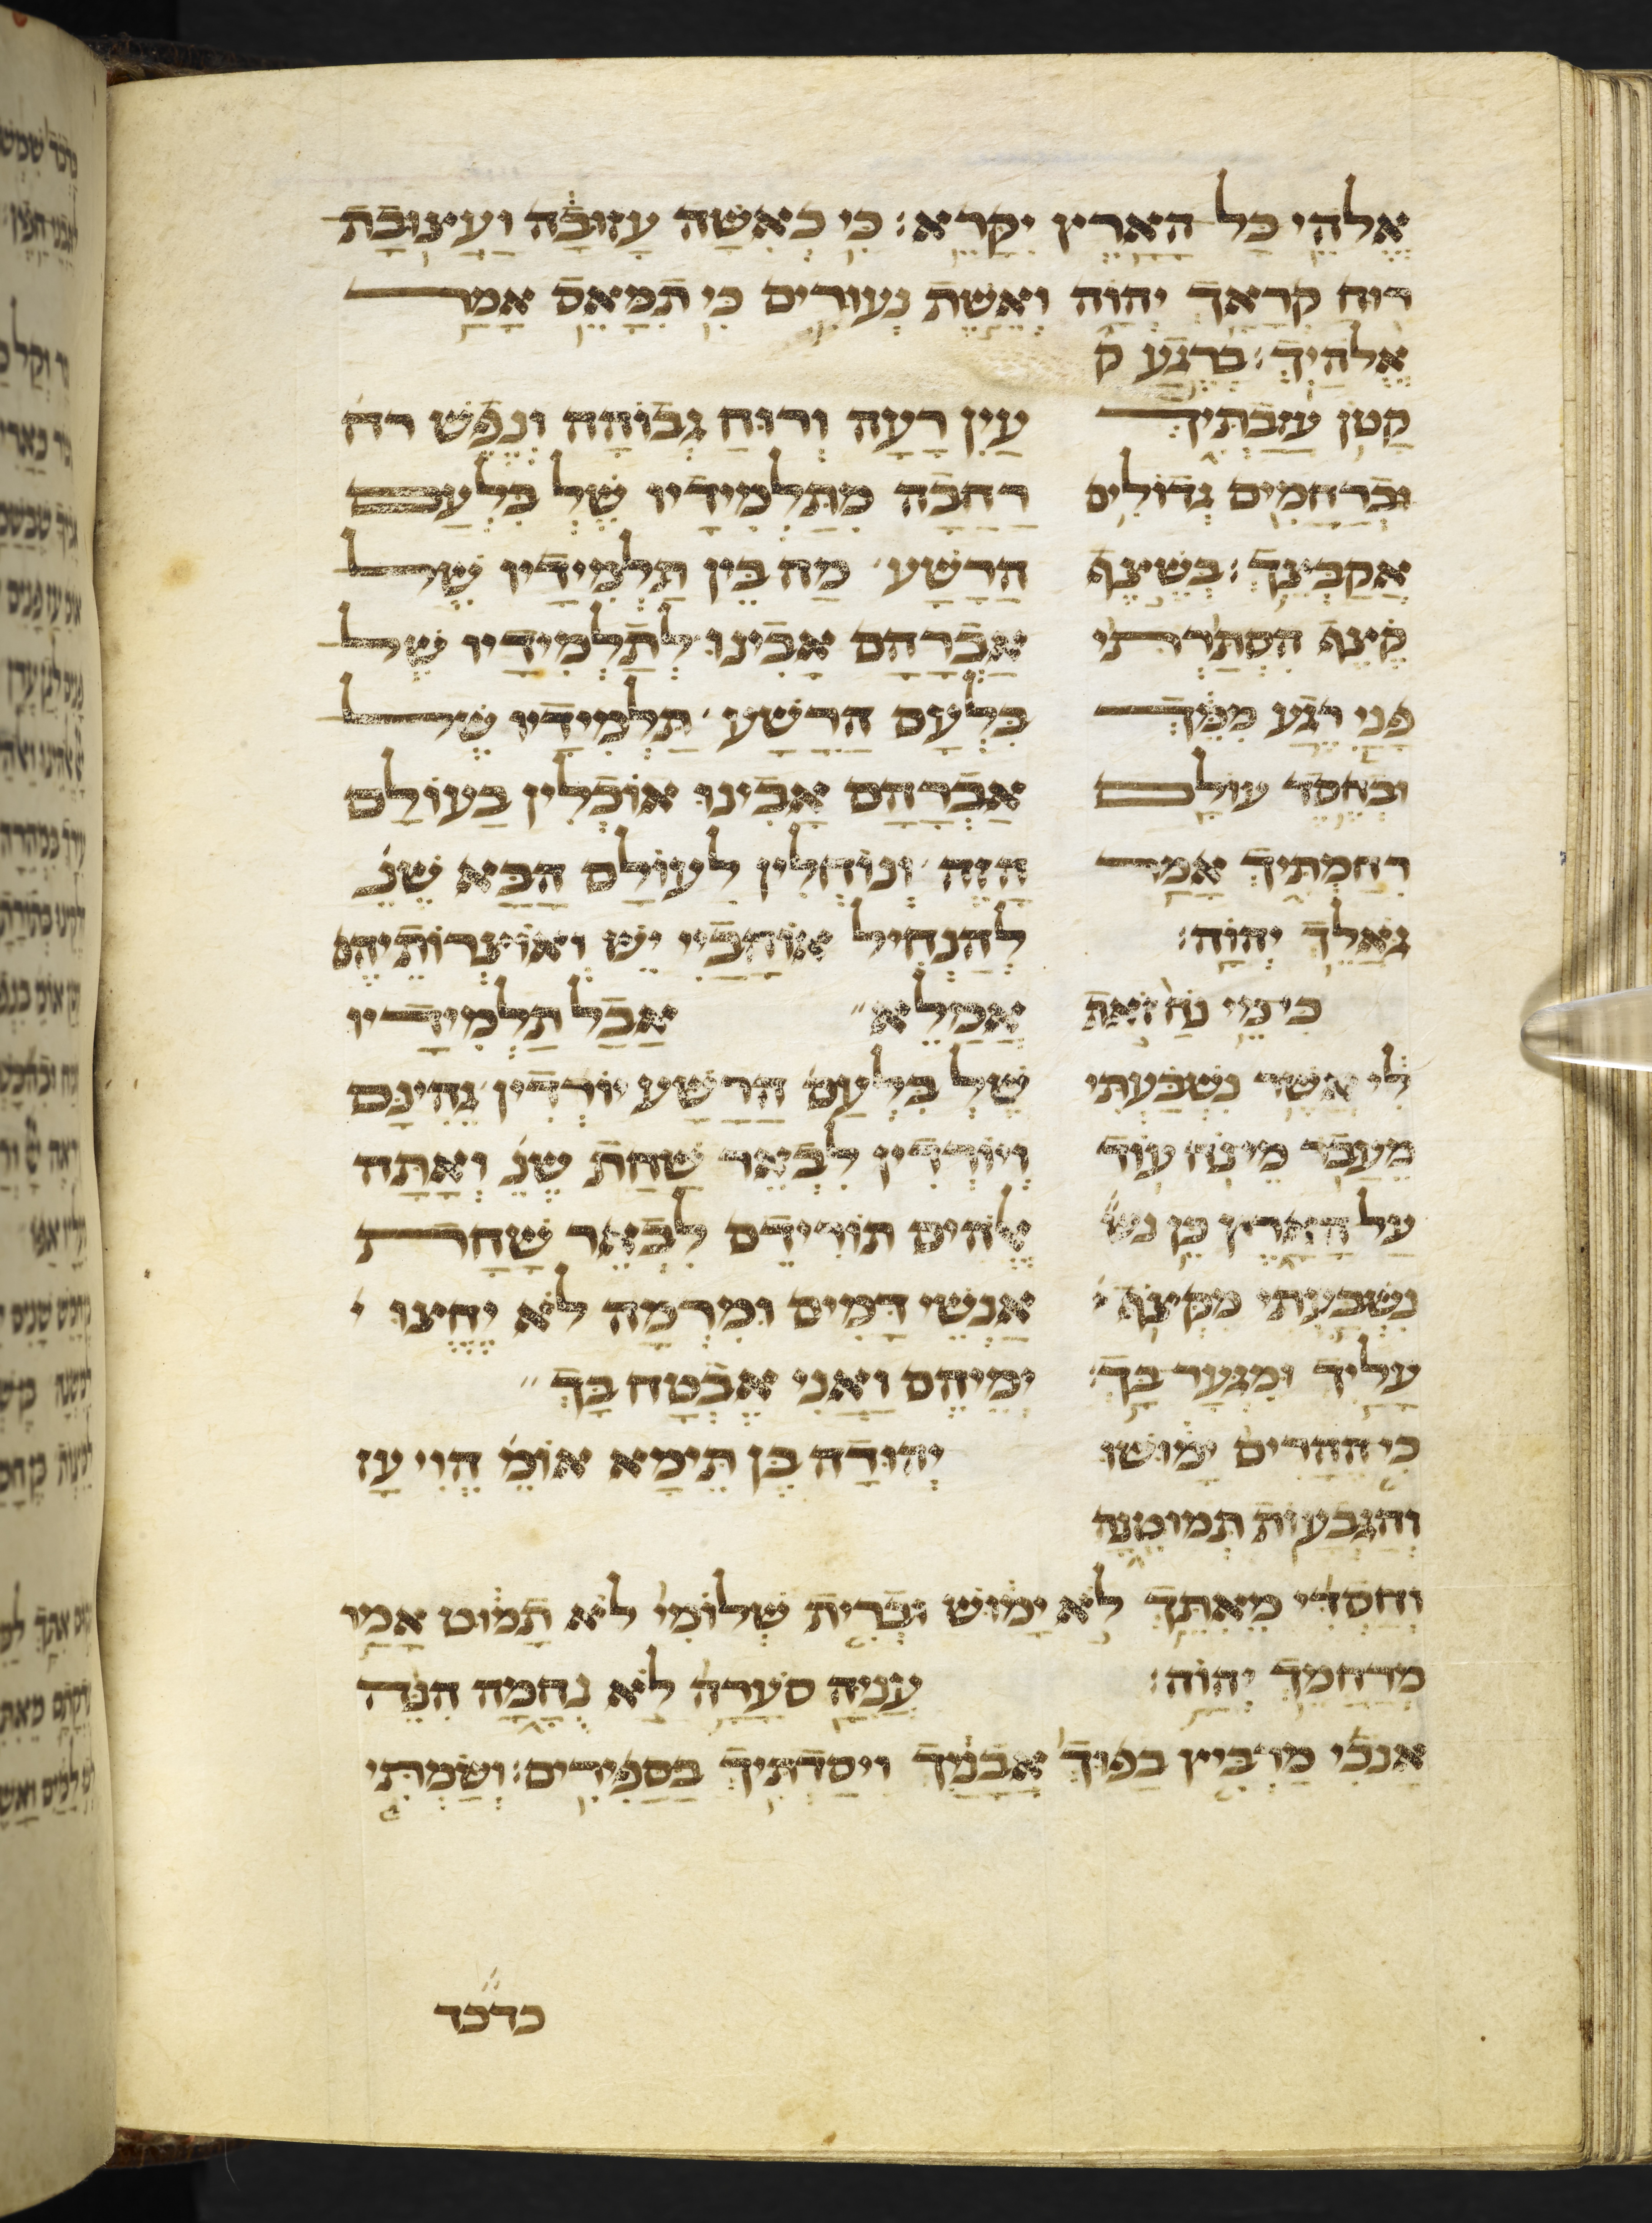 אלהי כל הארץ יקרא: כי כאשה עזובה ועצובת
רוח קראך יהוה ואשת נעורים כי תמאס אמר
אלהיך: ברגע ק
קטן עזבתיך
וברחמים גדולים
אקבצך: בשצף
קצף הסתרתי
פני רגע ממך
ובחסד עולם
רחמתיך אמר
גאלך יהוה:
כי מי נח זאת
לי אשר נשבעתי
מעבר מי נח עוד
על הארץ כן נש
נשבעתי מקצף
עליך ומגער בך:
כי ההרים ימושו
והגבעות תמוטנה
עין רעה ורוח גבוהה ונפש רח
רחבה מתלמידיו של בלעם
הרשע מה בין תלמידיו של
אברהם אבינו לתלמידיו של
בלעם הרשע תלמידיו של
אברהם אבינו אוכלין בעולם
הזה ונוחלין לעולם הבא שנ
להנחיל אוהביי יש ואוצרותיהם
אמלא אבל תלמידיו
של בלעם הרשע יורדין גהינם
ויורדין לבאר שחת שנ ואתה
אלהים תורידם לבאר שחת
אנשי דמים ומרמה לא יחצו י
ימיהם ואני אבטח בך
יהודה בן תימא אומ הוי עז
וחסדי מאתך לא ימוש וברית שלומי לא תמוט אמר
מרחמך יהוה: עניה סערה לא נחמה הנה
אנכי מרביץ בפוך אבניך ויסדתיך בספירים: ושמתי
כדכד